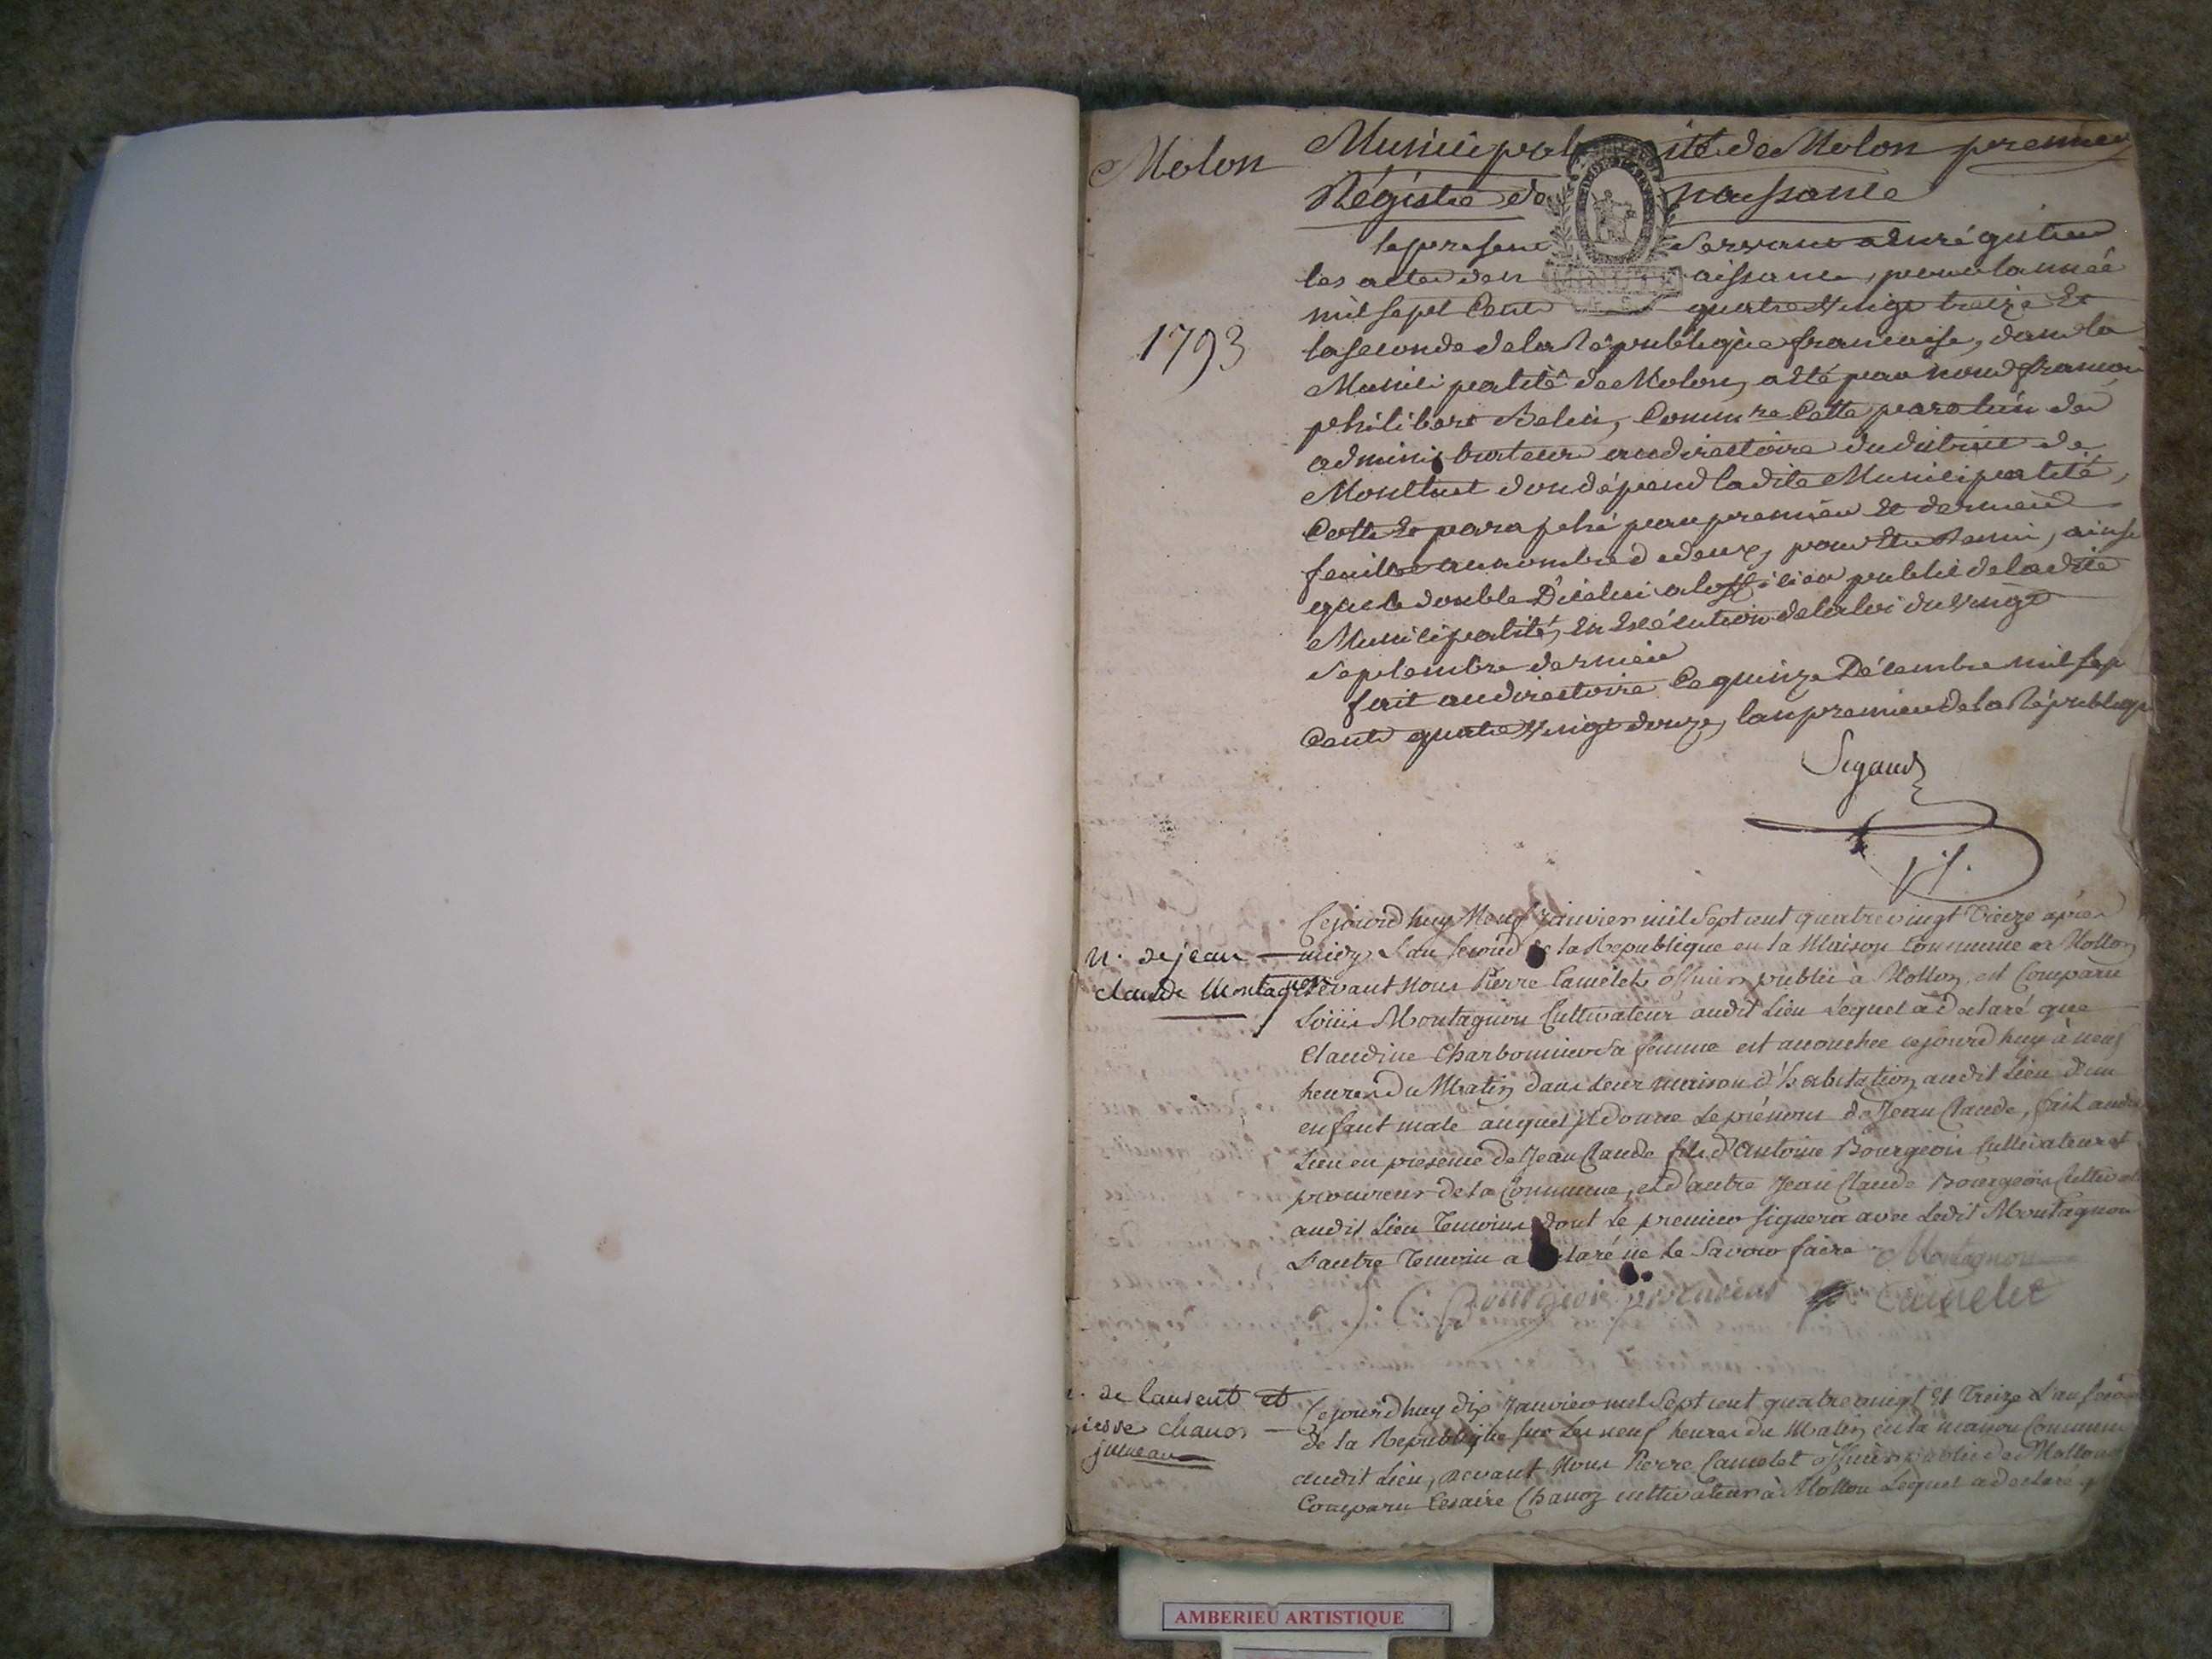 Molon
Municipalité de Molon premier
Régistre de naissance
le present servant a enrégistrer
les actes de naissance, pour lannée
1793
mil sept Cent quatre Vingt treize Et
la seconde de la République francaise, dans la
Municipalité de Molon, a été par nous françois
philibert Belin, Commre Cotte paraphé de
administrateurs au directoire du district de
Montluel dont dépend ladite Municipalité,
Cotté Et paraphé par premier Et dernier
feuillet au nombre de deux, pour Etre Remis, ainsi
que le double D'icelui a lofficier public de ladite
Municipalité, En Exécution de la loi du Vingt
Septembre dernier
fait au directoire Ce quinze Décembre mil sept
Cent quatre Vingt douze, lan premier de la République
Segaud
Cejourd'huy Neuf Janvier mil Sept cent quatre vingt Treize après
N. de jean midy L'an second de la Republique en la Maison Commune de Mollon
claude Montagnon Devant Nous Pierre Camelet officier public à Mollon, est Comparu
Loüis Montagnon Cultivateur audit Lieu Lequel a declaré que
Claudine Charbonnier Sa femme est accouchee cejourd'huy à neuf
heures du Matin dans Leur maison d'habitation audit Lieu d'un
enfant male auquel Il donne Le prénoms de Jean Claude, fait audit
Lieu en presence de Jean Claude fils d'Antoine Bourgeois Cultivateur et
procureur de la Commune, et d'autre Jean Claude Bourgeois Cultivat
audit Lieu Temoins dont Le premier signera avec Ledit Montagnon
L'autre Temoin a declaré ne le Savoir faire Montagnon
J. C. Bourgeois procureur Camelet
de laurent et Cejourd'huy dix Janvier mil Sept cent quatre vingt et Treize L'an second
pierre chanos de la Republique sur Les neuf heures du Matin en la maison Commune
jumeau audit Lieu, Devant Nous Pierre Camelet officier public de Mollon
Comparu Cesaire Chanoz cultivateur à Mollon Lequel a declaré q
AMBERIEU ARTISTIQUE